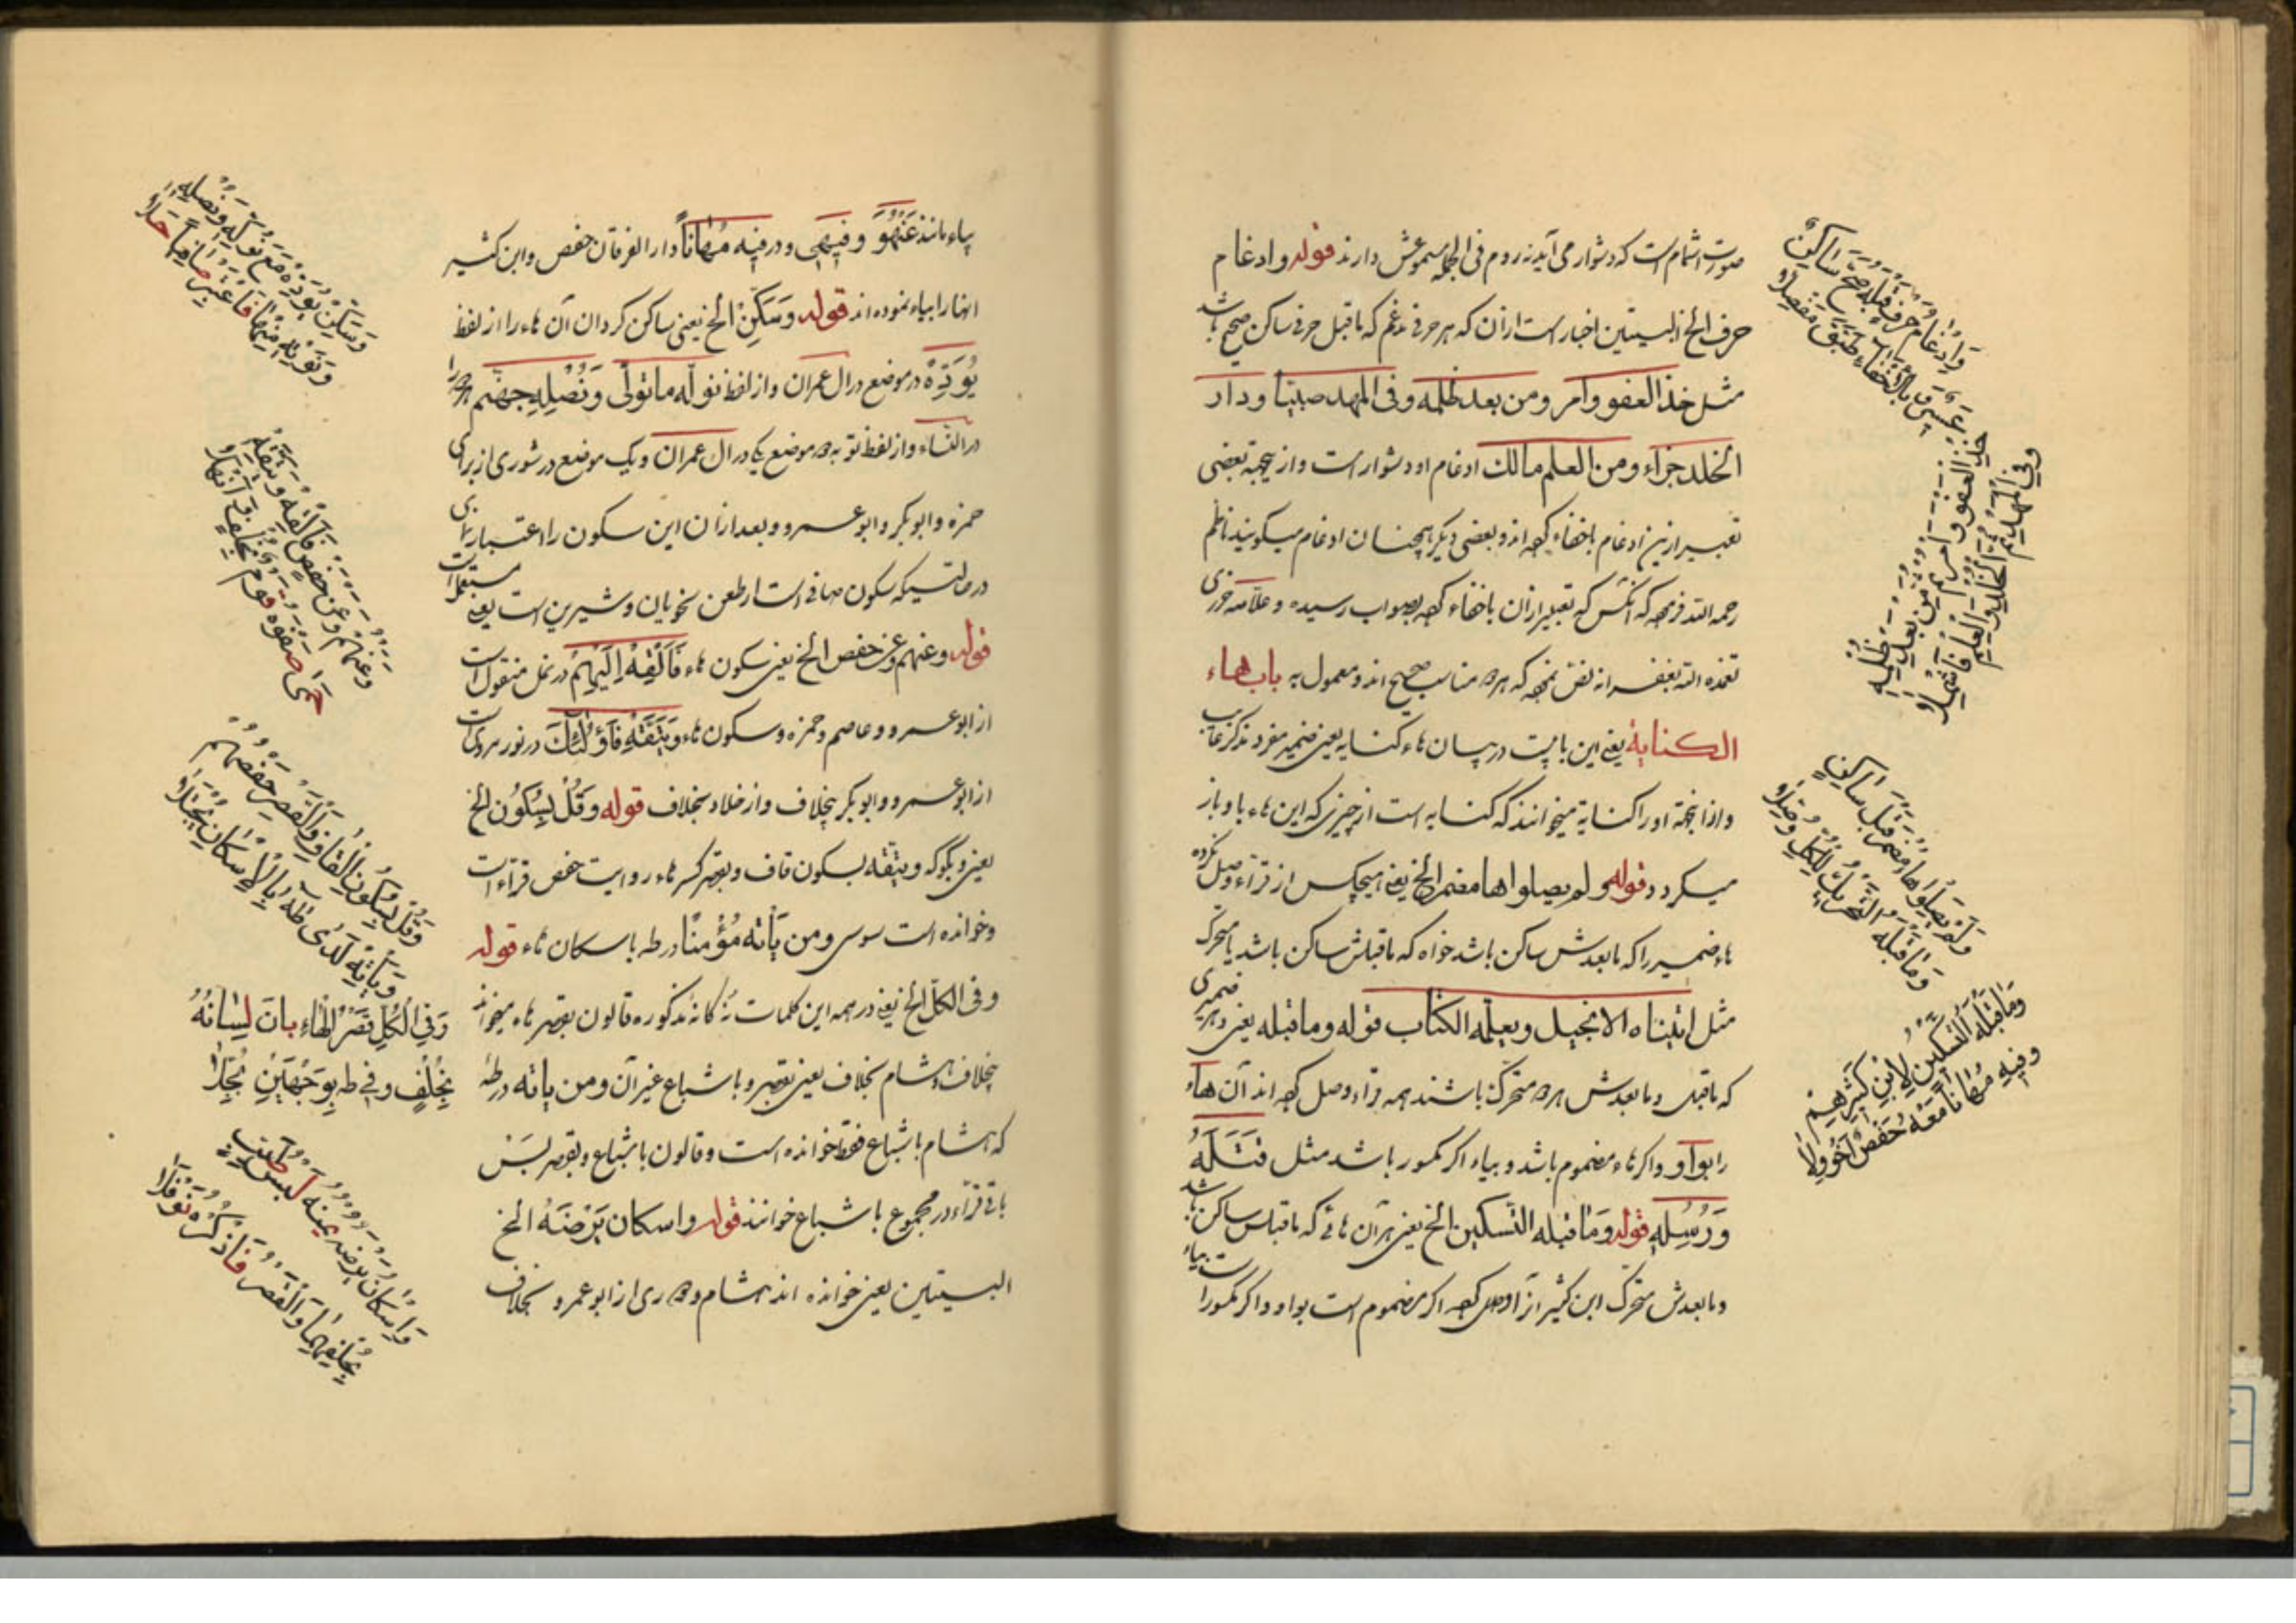 صورت اشمام است که دشوار می آید نه روم فی الجمله دارند قوله وادغام
حرف الخ البیتین اخبار است ازان که هر حرفی مدغم که ماقبل حرفی ساکن صحیح باشد
مثل خذ العفو وأمر ومن بعد ظلمه وفی المهد صبیا ودار
الخلد جزاء ومن العلم مالك ادغام او دشوار است و ازیجهته بعضی
تعبیر ازین ادغام باخفاء کرده اند و بعضی دیگر همچنان ادغام میگویند ناظم
رحمه الله فرموده که آنکس که تعبیر ازان باخفاء کرده بصواب رسیده و علامه جزری
تغمده الله بغفرانه نص نموده که هر دو مناسب صحیح اند و معمول به باب هاء
الكناية یعنی این بابیست در بیان هاء کنایه یعنی ضمیر مفرد مذکر غایب
و ازاینجهة او را کنایه میخوانند که کنایه است از چیزی که این هاء باو باز
میگردد قوله ولم یصلوا ها مضمر الخ یعنی هیچکس از قراء وصل نکرده
هاء ضمیر را که مابعدش ساکن باشد خواه که ماقبلش ساکن باشد یا متحرک
مثل اتیناه الانجیل ویعلمه الکتاب قوله وما قبله یعنی و هر ضمیری
که ماقبل و مابعدش هر دو متحرک باشند همه قراء وصل کرده اند آن هاء
را بواو واگر هاء مضموم باشد و بیاء اگر مکسور باشد مثل فَتَلَهُ
وَرُسُلِهِ قوله وَمَا قبله التسکین الخ یعنی هر آن هائی که ماقبلش ساکن باشد
ومابعدش متحرک ابن کثیر آنرا وصل کرده اگر مضموم است بواو واگر مکسور است بیاء
وَإِدْغَامُ حَرْفٍ قَبْلَهُ صَحَّ سَاكِنٌ
عَسِيرٌ وَبِالْإِخْفَاءِ طَبَّقَ مَفْصِلَا
خُذِ العَفْوَ وَأْمُرْ ثُمَّ مِنْ بَعْدِ ظُلْمِهِ
وَفِي المَهْدِ ثُمَّ الخُلْدِ وَالعِلْمِ فَاشْمُلَا
وَلَمْ يَصِلُوا هَا مُضْمَرٍ قَبْلَ سَاكِنٍ
وَمَا قَبْلَهُ التَّحْرِيكُ لِلْكُلِّ وُصِّلَا
وَمَا قَبْلَهُ التَّسْكِينُ لِابْنِ كَثِيرِهِمْ
وَفِيهِ مُهَانًا مَعْهُ حَفْصٌ أَخُو وِلَا
بیاء مانند عَنْهُوَ وفیهی ودر فیه مُهَاناً دار الفرقان حفص وابن کثیر
انهارا بیاء نموده اند قوله وَسَكِّنْ الخ یعنی ساکن گردان آن هاء را از لفظ
یُؤَدِّهْ در موضع در ال عمران واز لفظ نوله ماتولی وَنُصْلِهِ جهنم
در النساء واز لفظ نوته دو موضع یکی در ال عمران ویک موضع در شوری از برای
حمزه وابو بکر وابو عمرو و بعد ازان این سکون را اعتبار
در حالتیکه سکون صافی است از طعن نحویان وشیرین است یعنی مستعملست
قوله وعنهم وعن حفص الخ یعنی سکون هاء فَأَلْقِهْ إِلَيْهِمْ در نمل منقول است
از ابو عمرو و عاصم وحمزه وسکون هاء وَیَتَّقْهِ فَأُولَئِكَ در نور مرویست
از ابو عمرو وابو بکر بیخلاف واز خلاد بخلاف قوله وَقُلْ بِسُکُون الخ
یعنی وبگو که ویتقه بسکون قاف وبقصر کسر هاء روایت حفص قراءات
وخوانده است سوسی ومن یَأْته مُؤْمنًا در طه باسکان هاء قوله
وفی الكلّ الخ یعنی در همه این کلمات نه گانه مذکوره قالون بقصر هاء میخواند
بیخلاف وهشام بخلاف یعنی بقصر وباشباع غیر آن ومن یاته در طه
که هشام باشباع فقط خوانده است وقالون باشباع وبقصر بَسْ
باقی قراء در مجموع باشباع خوانند قوله واسکان یَرْضَهُ الخ
البیتین یعنی خوانده اند هشام ودوری از ابو عمرو بخلاف
وَسَكِّنْ يُؤَدِّهْ مَعْ نُوَلِّهْ وَنُصْلِهِ
وَنُؤْتِهِ مِنْهَا فَاعْتَبِرْ صَافِيًا حَلَا
وَعَنْهُمْ وَعَنْ حَفْصٍ فَأَلْقِهْ وَيَتَّقِهْ
حَمَى صَفْوَهُ قَوْمٌ بِخُلْفٍ وَأَنْهَلَا
وَقُلْ بِسُكُونِ القَافِ وَالقَصْرِ حَفْصُهُمْ
وَيَأْتِهِ لَدَى طَهَ بِالإِسْكَانِ يُجْتَلَا
وَفِي الْكُلِّ قَصْرُ الْهَاءِ بَانَ لِسَانُهُ
بِخُلْفٍ وَفِي طه بِوَجْهَيْنِ بُجِّلَا
وَإِسْكَانُ يَرْضَهُ يُمْنُهُ لُبْسُ طَيِّبٍ
بِخُلْفِهِمَا وَالقَصْرَ فَاذْكُرْهُ نَوْفَلَا